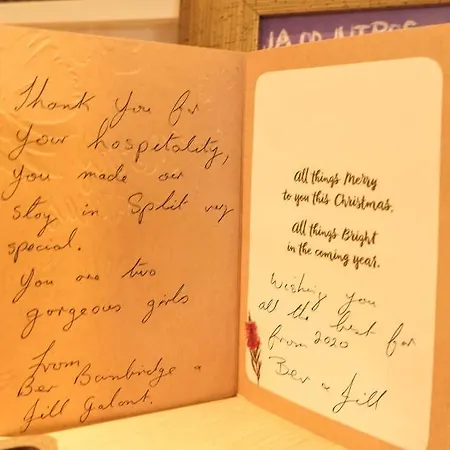 JA
Thank you for
your hospitality,
you made our
stay in Split very
special.
You are two
gorgeous girls
from
Bev Bambridge &
Jill Galont.
All things Merry
to you this Christmas,
All things Bright
in the coming year.
Wishing you
all the best for
from 2020
Bev & Jill